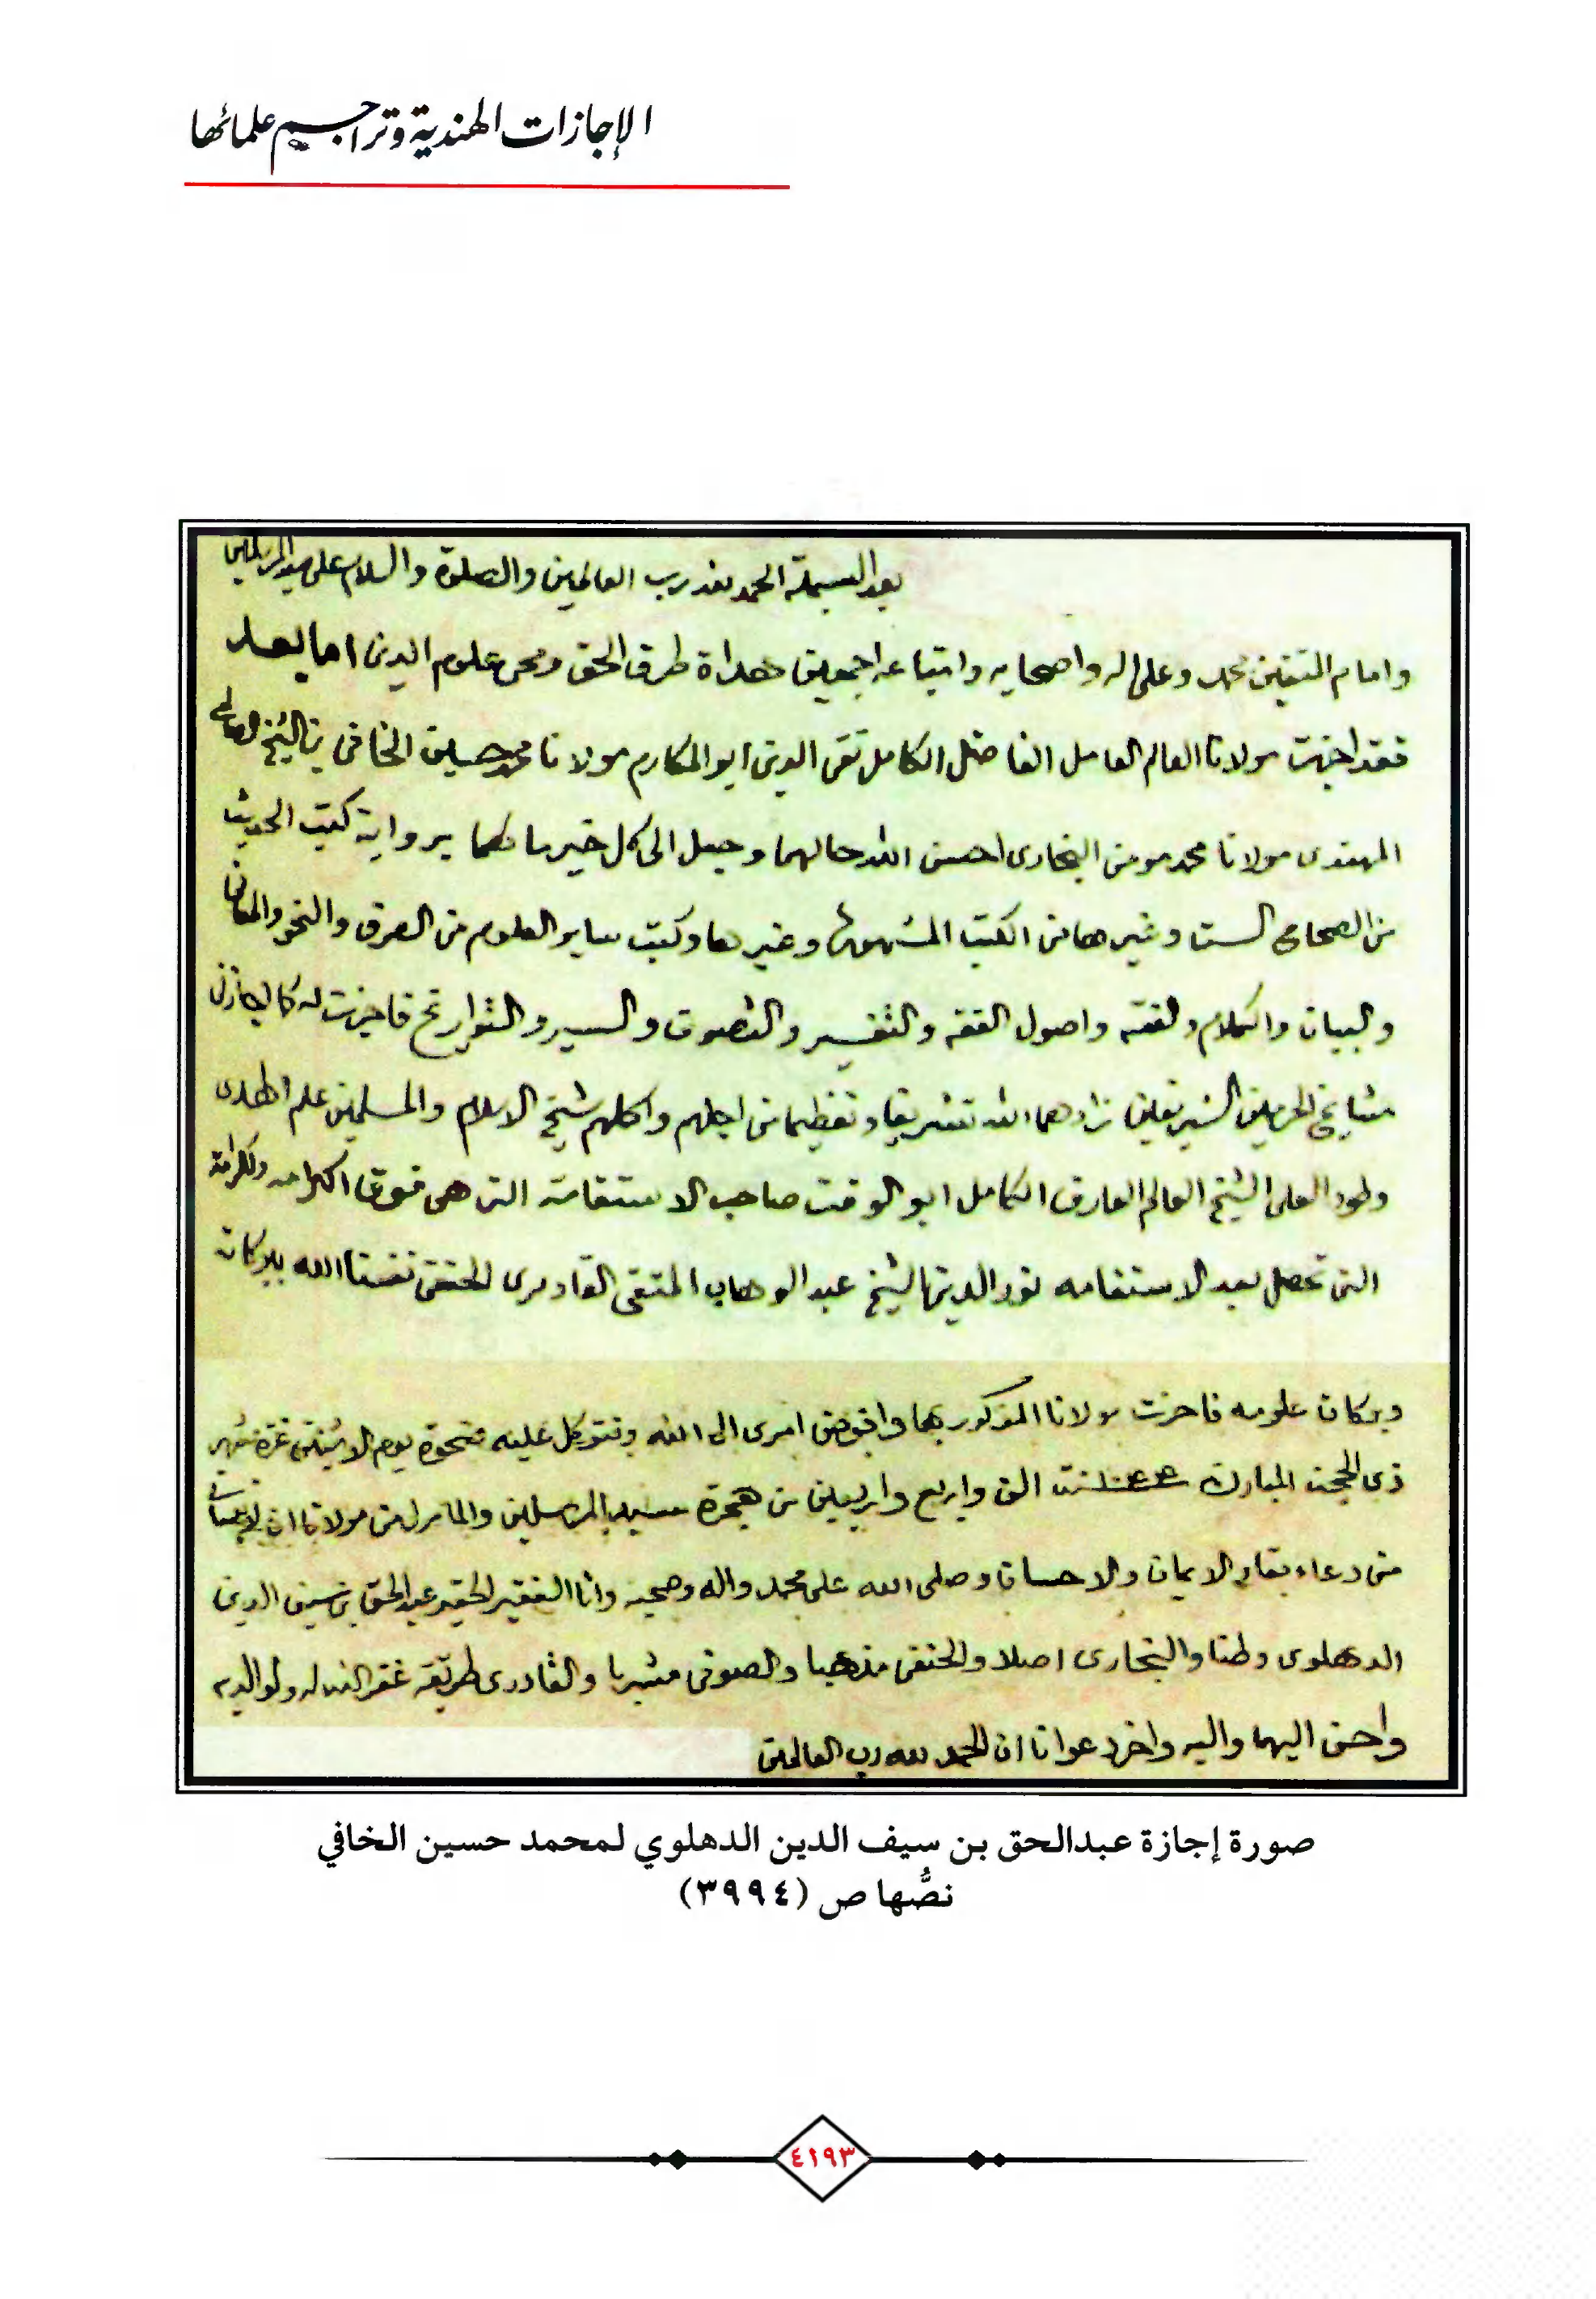 الإجازات الهندية وتراجيم علمائها
بعد البسملة الحمد لله رب العالمين والصلوة والسلام على سيد المرسلين
وامام المتقين محمد وعلى اله واصحابه واتباعه اجمعين هداة طرق الحق ومحى علوم الدين اما بعد
فقد اجزت مولانا العالم العامل الفاضل الكامل تقى الدين ابو المكارم مولانا محمد حسين الخافى بن الشيخ الصالح
المهتدى مولانا محمد مومن البخارى احسن الله حالهما وجعل الى كل خير ما لهما برواية كتب الحديث
من الصحاح الست وغيرها من الكتب المشهورة وغيرها وكتب ساير العلوم من الصرف والنحو والمعانى
والبيان والكلام والفقه واصول الفقه والتفسير والتصوف والسير والتواريخ فاجزت له كما اجازنى
مشايخ الحرمين الشريفين زادهما الله تشريفا وتعظيما من اجلهم واكملهم شيخ الاسلام والمسلمين علم الهدى
وطود العلى الشيخ العالم العارف الكامل ابو الوقت صاحب الاستقامة التى هى فوق الكرامة والكرامة
التى تحصل بعد الاستقامه نور الدين الشيخ عبد الوهاب المتقى القادرى الحنفى نفعنا الله ببركاته
وبركات علومه فاجزت مولانا المذكور بها وافوض امرى الى الله ونتوكل عليه ضحوة يوم الاثنين غرة شهر
ذى الحجة المبارك سنة الف واربع واربعين من هجرة سيد المرسلين والمامول من مولانا ان لا ينسانا
من دعاء بقاء الايمان والاحسان وصلى الله على محمد واله وصحبه وانا الفقير الحقير عبد الحق بن سيف الدين
الدهلوى وطنا والبخارى اصلا والحنفى مذهبا والصوفى مشربا والقادرى طريقة غفر الله له ولوالديه
واحسن اليهما واليه واخر دعوانا ان الحمد لله رب العالمين
صورة إجازة عبدالحق بن سيف الدين الدهلوي لمحمد حسين الخافي
نصُّها ص (٣٩٩٤)
٤١٩٣